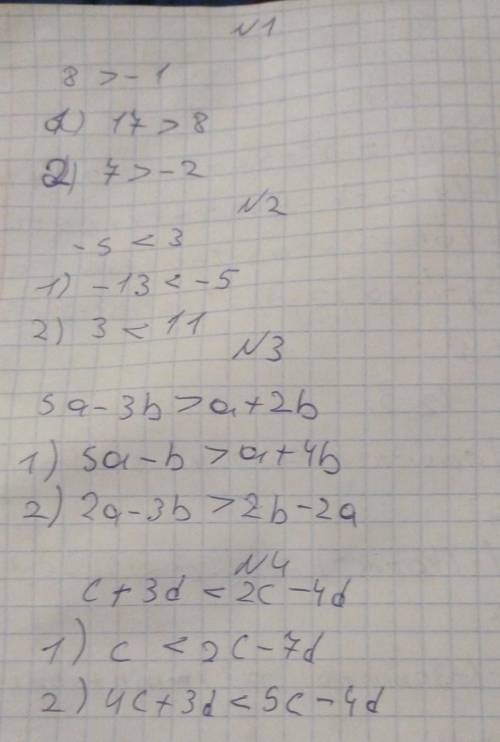 N1
8 > -1
1) 17 > 8
2) 7 > -2
N2
-5 < 3
1) -13 < -5
2) 3 < 11
N3
5a - 3b > a + 2b
1) 5a - b > a + 4b
2) 2a - 3b > 2b - 2a
N4
c + 3d < 2c - 4d
1) c < 2c - 7d
2) 4c + 3d < 5c - 4d